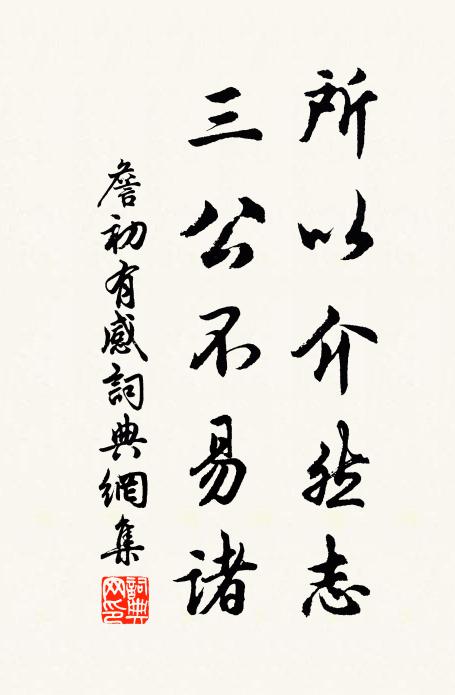 所以介然志
三公不易諸
詹初有感詞典網集
詞典网印